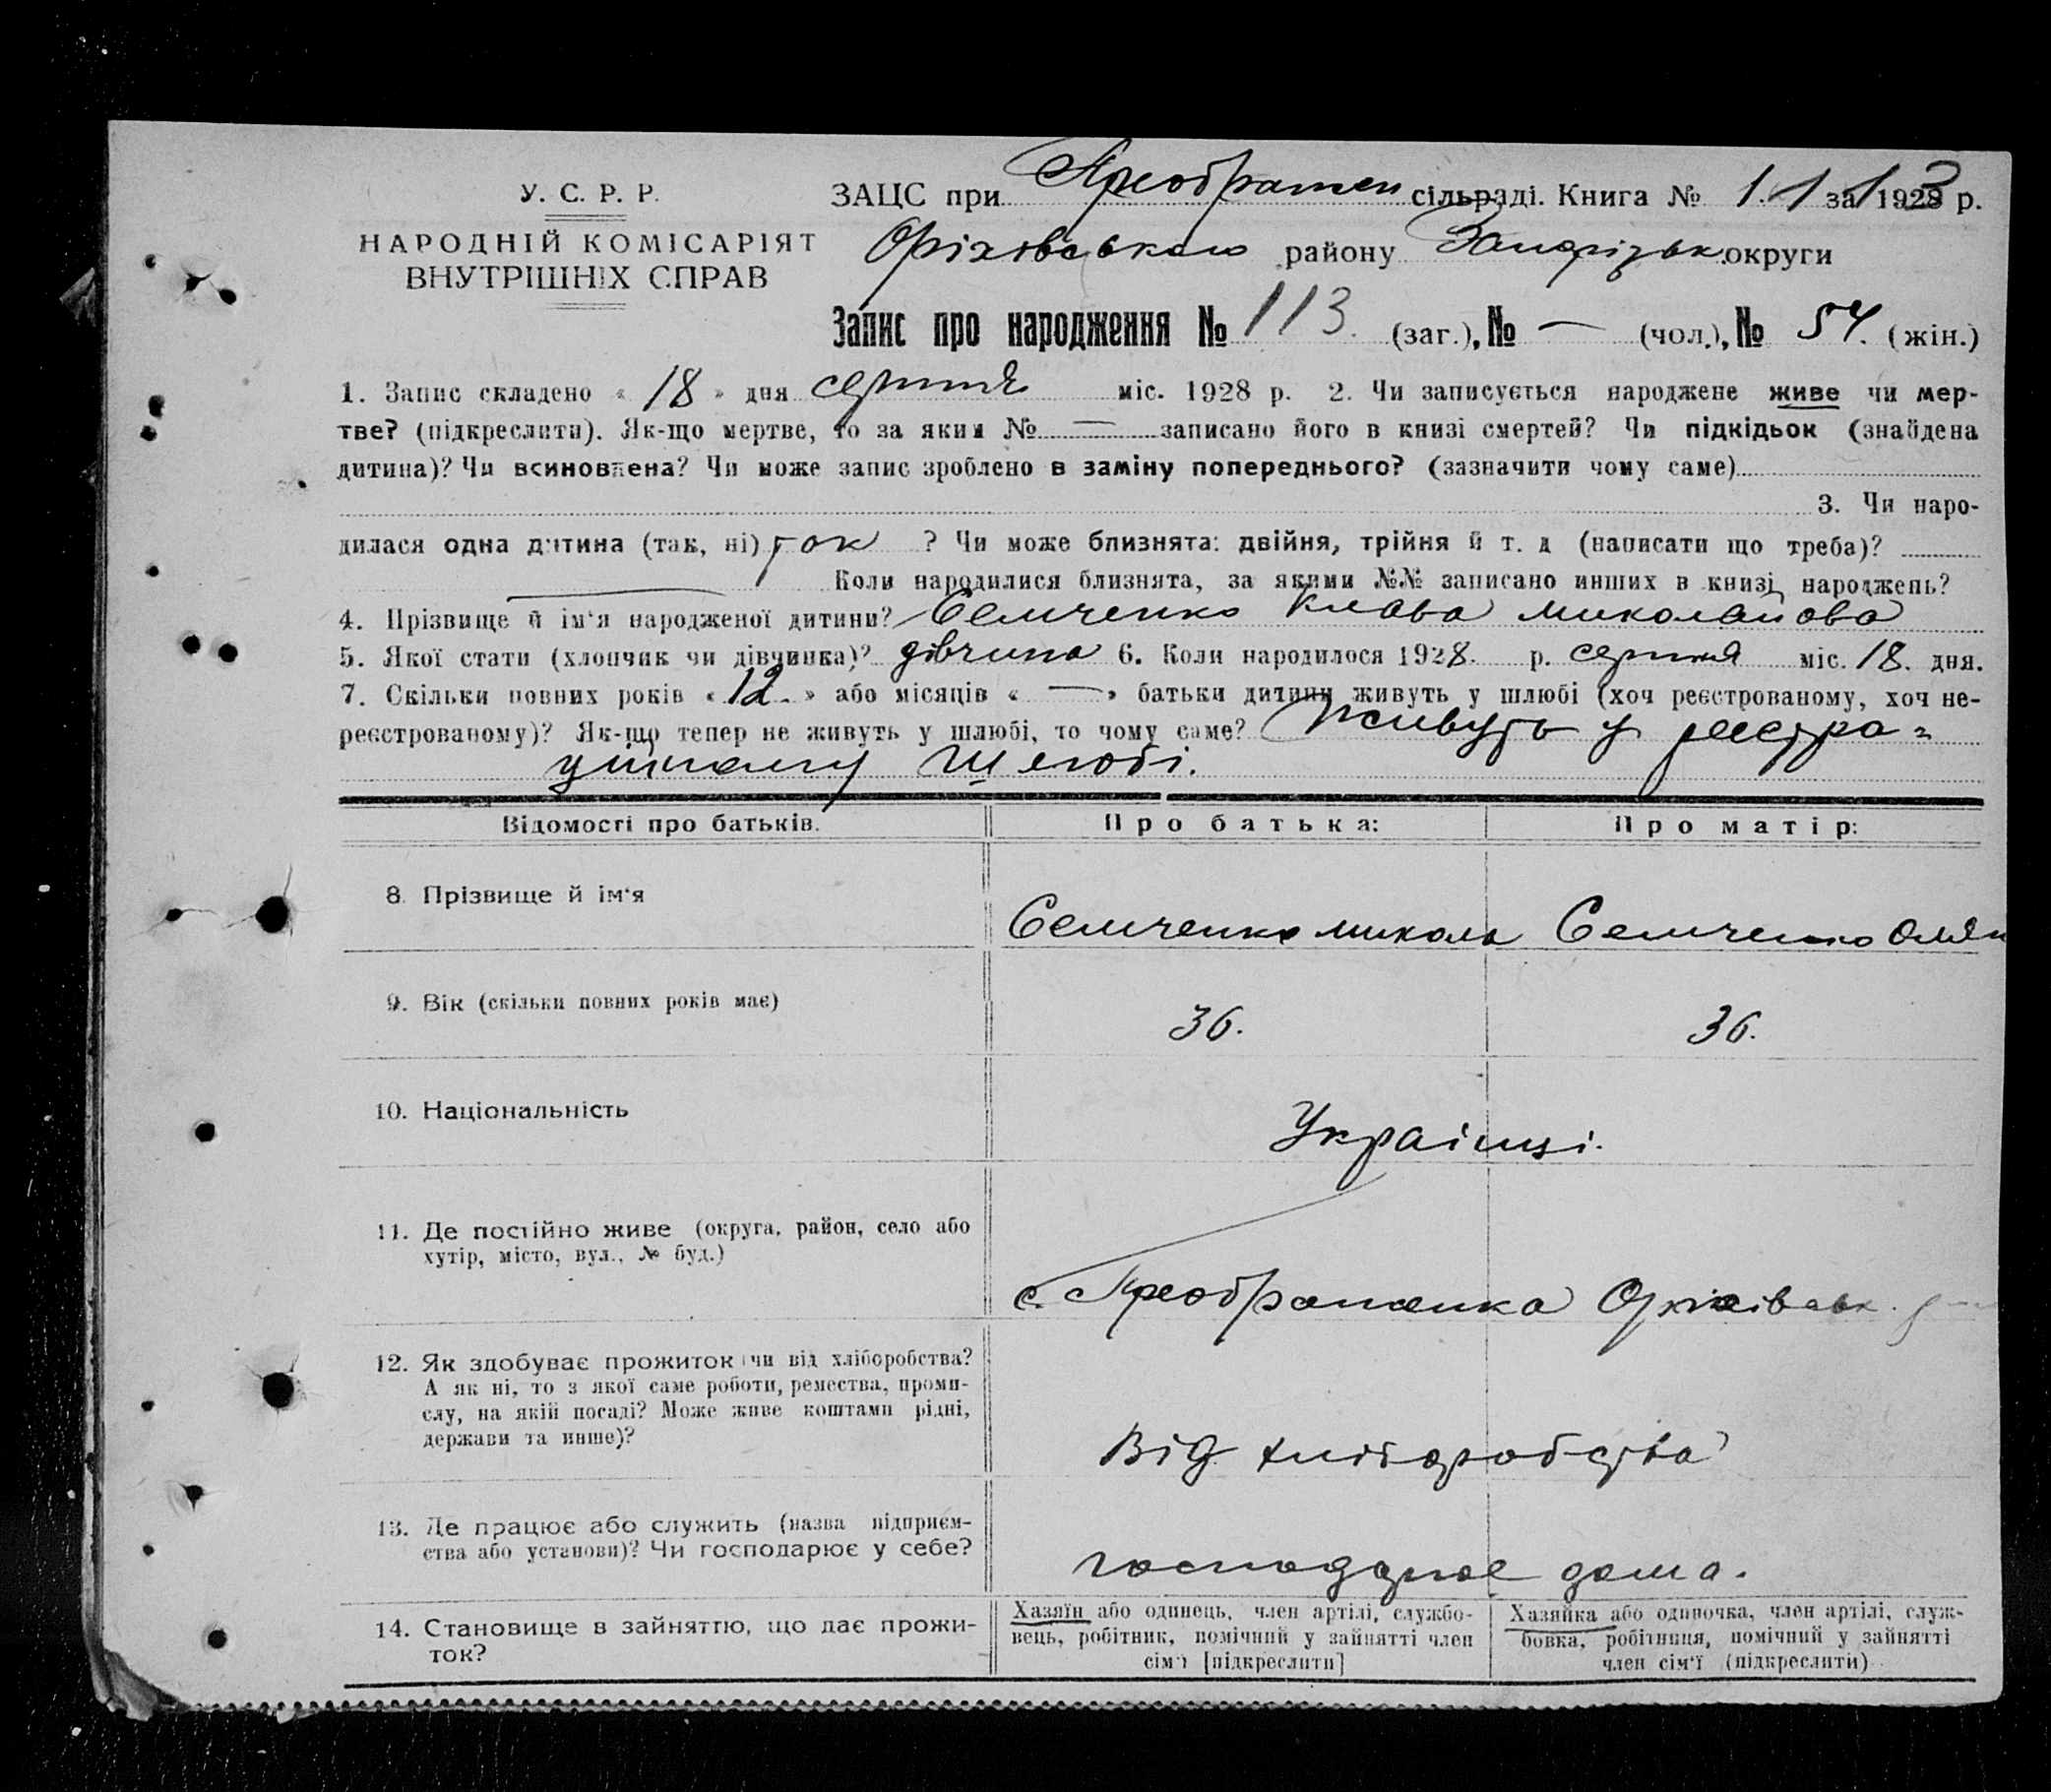 У. С. Р. Р.
НАРОДНІЙ КОМІСАРІЯТ
ВНУТРІШНІХ СПРАВ
ЗАЦС при Преображен сільраді. Книга № 1. за 1928 р.
Оріхівського району Запорізьк. округи
Запис про народження № 113. (заг.), № — (чол.), № 54. (жін.)
1. Запис складено « 18 » дня серпня міс. 1928 р. 2. Чи записується народжене живе чи мер-
тве? (підкреслити). Як-що мертве, то за яким № — записано його в книзі смертей? Чи підкідьок (знайдена
дитина)? Чи всиновлена? Чи може запис зроблено в заміну попереднього? (зазначити чому саме)
3. Чи наро-
дилася одна дитина (так, ні) так ? Чи може близнята: двійня, трійня й т. д (написати що треба)?
— Коли народилися близнята, за якими №№ записано инших в книзі народжень?
4. Прізвище й ім'я народженої дитини? Семченко Клава Миколайова
5. Якої стати (хлопчик чи дівчинка)? дівчина 6. Коли народилося 1928. р. серпня міс. 18. дня.
7. Скільки повних років « 12 » або місяців « — » батьки дитини живуть у шлюбі (хоч реєстрованому, хоч не-
реєстрованому)? Як-що тепер не живуть у шлюбі, то чому саме? Живуть у реєстра-
ційному шлюбі.
Відомості про батьків. Про батька: Про матір:
8. Прізвище й ім'я Семченко Микола Семченко
9. Вік (скільки повних років має) 36. 36.
10. Національність Українці.
11. Де постійно живе (округа, район, село або
хутір, місто, вул., № буд.)
с. Преображенка Оріхівськ.
12. Як здобуває прожиток (чи від хліборобства?
А як ні, то з якої саме роботи, ремества, проми-
слу, на якій посаді? Може живе коштами рідні,
держави та инше)?
Від хліборобства
13. Де працює або служить (назва підприєм-
ства або установи)? Чи господарює у себе?
господарює дома.
14. Становище в зайняттю, що дає прожи-
ток?
Хазяїн або одинець, член артілі, службо-
вець, робітник, помічний у зайнятті член
сім'ї [підкреслити]
Хазяйка або одиночка, член артілі, служ-
бовка, робітниця, помічний у зайнятті
член сім'ї (підкреслити)